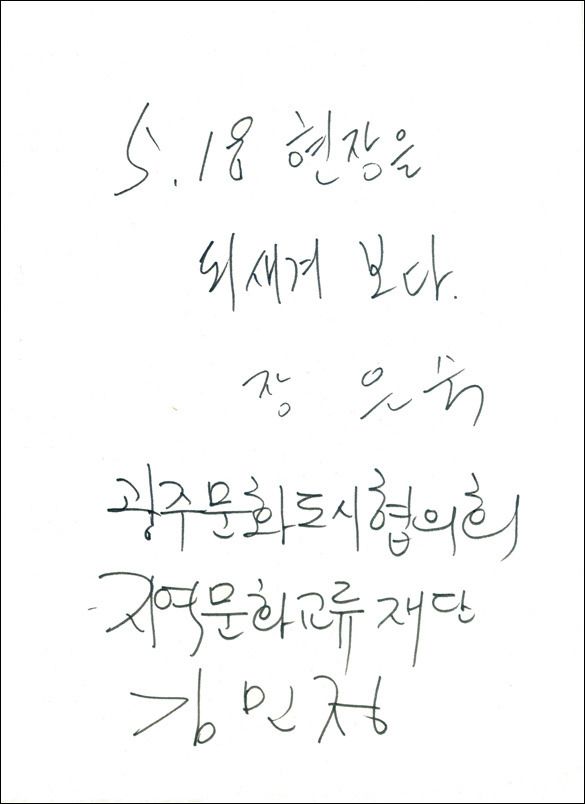 5.18 현장을
되새겨 보다.
장
광주문화도시협의회
지역문화교류재단
김민정